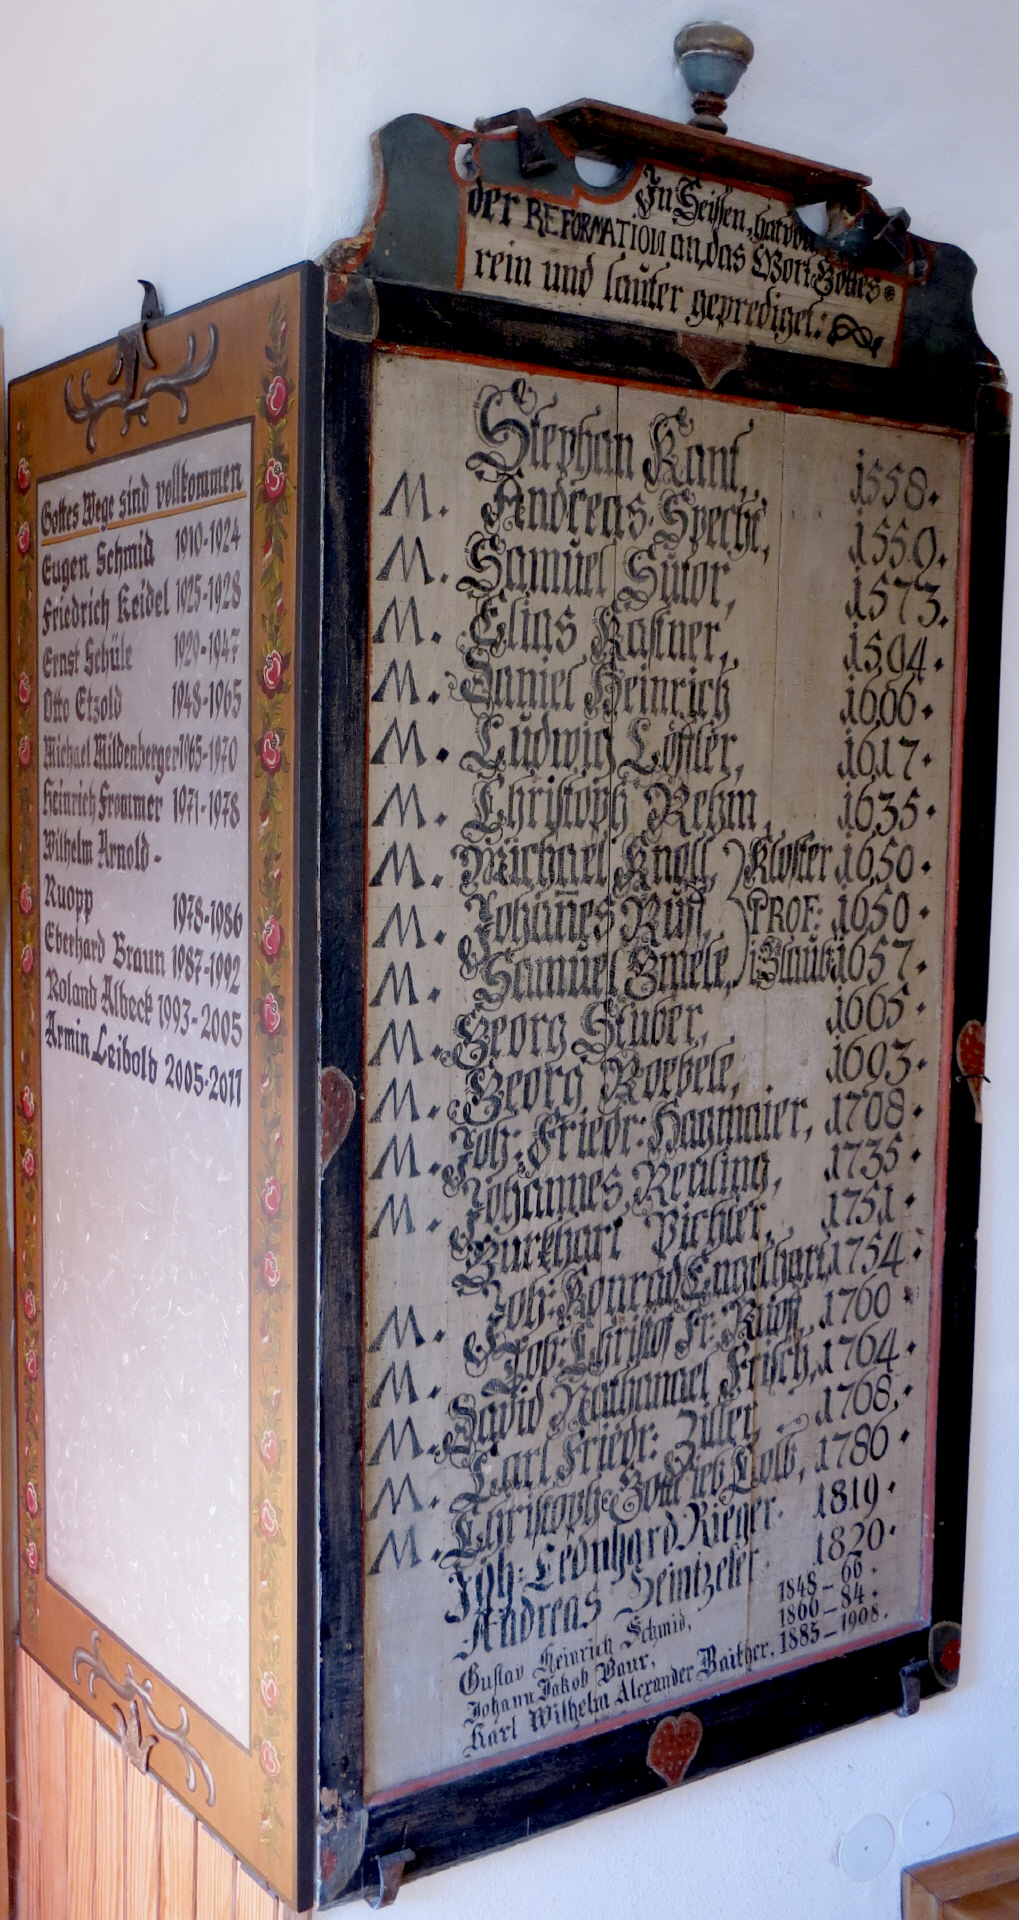 Gottes Wege sind vollkommen
Eugen Schmid 1910-1924
Friedrich Keidel 1925-1928
Ernst Schüle 1929-1947
Otto Etzold 1948-1965
Michael Mildenberger 1965-1970
Heinrich Frommer 1971-1978
Wilhelm Arnold-
Ruopp 1978-1986
Eberhard Braun 1987-1992
Roland Albeck 1993-2005
Armin Leibold 2005-2011
In Seissen, hat von
der REFORMATION an, das Wort Gottes
rein und lauter geprediget:
Stephan Kant, 1558.
M. Andreas Specht, 1559.
M. Samuel Sutor, 1573.
M. Elias Kastner, 1594.
M. Daniel Heinrich 1606.
M. Ludwig Löffler, 1617.
M. Christoph Rehm, 1635.
M. Michael Knoll, Kloster 1650.
M. Johannes Ruff, PROF: 1650.
M. Samuel Gmele, i. Blaub: 1657.
M. Georg Stuber, 1665.
M. Georg Roebele, 1693.
M. Joh: Friedr: Hagmaier, 1708.
M. Johannes Renling, 1735.
Burkhart Bichler, 1751.
M. Joh: Konrad Engelhart, 1754.
M. Job: Christof Fr: Ruoff, 1760.
M. David Nathanael Frisch, 1764.
M. Carl Friedr: Ziller, 1768.
M. Christoph Gottlieb Colb, 1786.
Joh: Leonhard Rieger. 1819.
Andreas Heintzeler. 1820.
Gustav Heinrich Schmid, 1848-66.
Johann Jakob Baur, 1866-84.
Karl Wilhelm Alexander Baither, 1885-1908.